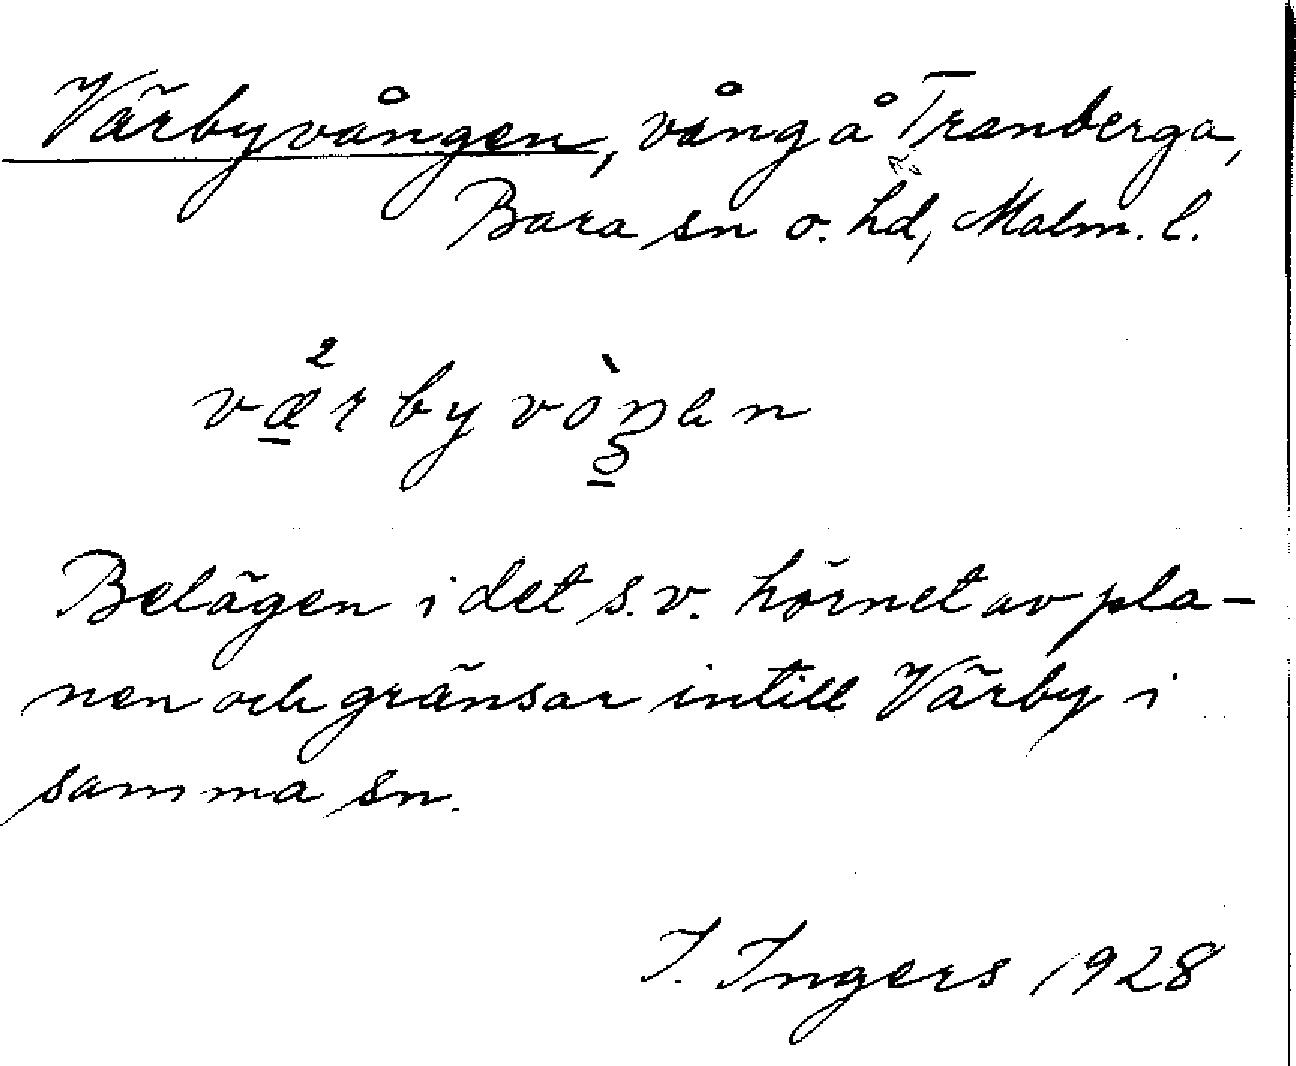 Värbyvången, vång å Tranberga,
Bara sn o. hd, Malm. l.
Belägen i det s.v. hörnet av pla-
nen och gränsar intill Värby i
samma sn.
I. Ingers 1928